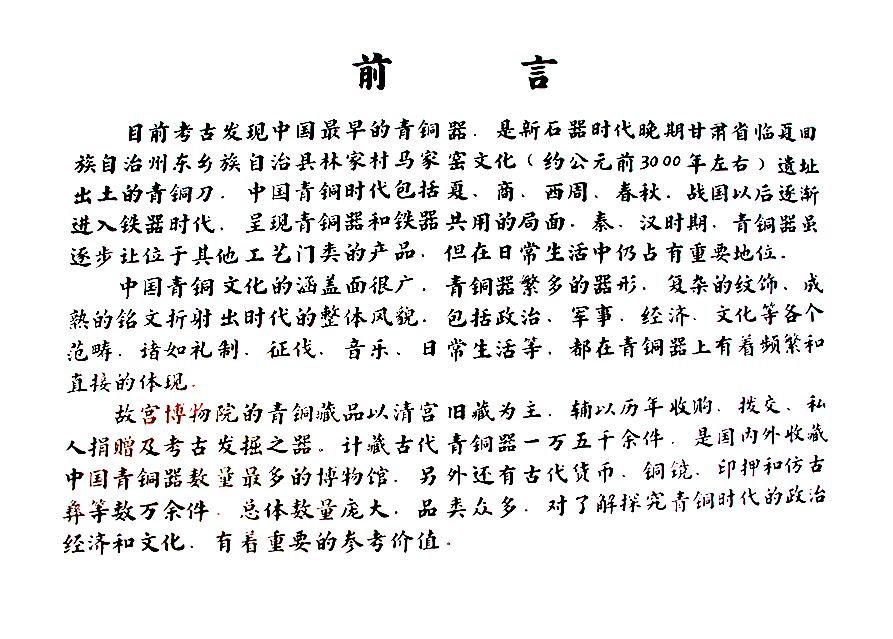 前 言
目前考古发现中国最早的青铜器，是新石器时代晚期甘肃省临夏回
族自治州东乡族自治县林家村马家窑文化（约公元前3000年左右）遗址
出土的青铜刀。中国青铜时代包括夏、商、西周、春秋，战国以后逐渐
进入铁器时代，呈现青铜器和铁器共用的局面，秦、汉时期，青铜器虽
逐步让位于其他工艺门类的产品，但在日常生活中仍占有重要地位。
中国青铜文化的涵盖面很广，青铜器繁多的器形，复杂的纹饰，成
熟的铭文折射出时代的整体风貌，包括政治、军事、经济、文化等各个
范畴，诸如礼制，征伐，音乐、日常生活等，都在青铜器上有着频繁和
直接的体现。
故宫博物院的青铜藏品以清宫旧藏为主，辅以历年收购、拨交、私
人捐赠及考古发掘之器。计藏古代青铜器一万五千余件，是国内外收藏
中国青铜器数量最多的博物馆，另外还有古代货币，铜镜，印押和仿古
彝等数万余件，总体数量庞大，品类众多，对了解探究青铜时代的政治
经济和文化，有着重要的参考价值。